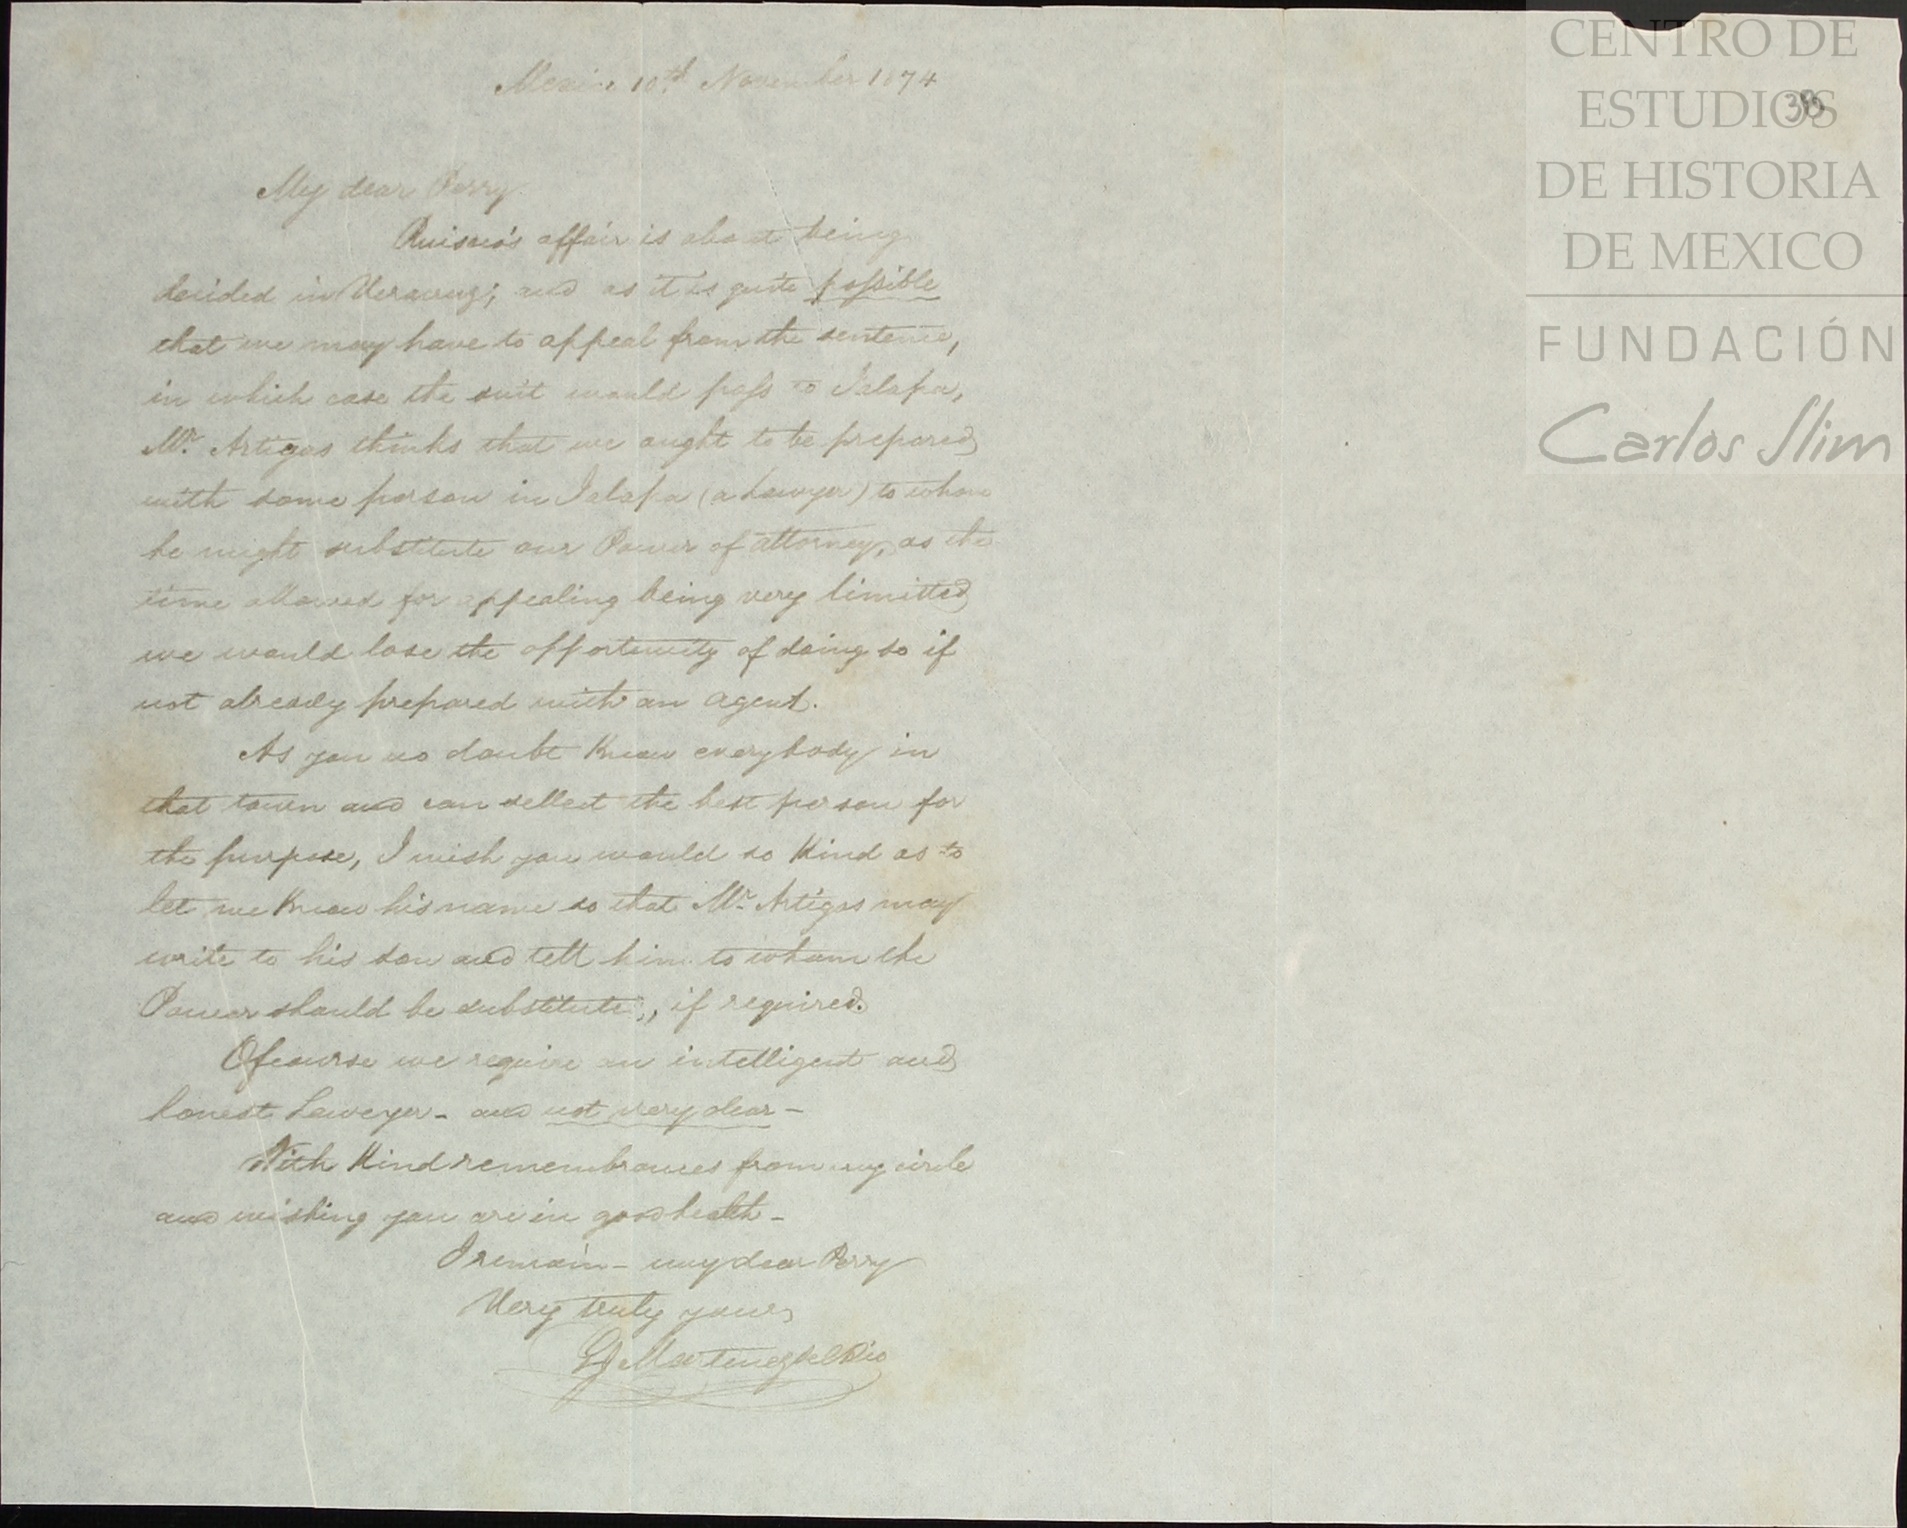 Mexico 10th November 1874
38
My dear Perry
affair is about being
decided in Veracruz; and as it is quite possible
that we may have to appeal from the sentence,
in which case the suit would pass to Jalapa,
Mr. Artigas thinks that we ought to be prepared
with some person in Jalapa (a Lawyer) to whom
he might substitute our Power of attorney, as the
time allowed for appealing being very limitted
we would lose the opportunity of doing so if
not already prepared with an agent.
As you no doubt Know everybody in
that town and can sellect the best person for
the purpose, I wish you would so Kind as to
let me Know his name so that Mr. Artigas may
write to his son and tell him to whom the
Power should be substitute, if required.
Ofcourse we require an intelligent and
honest Laweyer - and not very dear -
With Kind remembrances from my circle
and wishing you are in good health -
I remain - my dear Perry
Very truly yours
Martinez del Rio
CENTRO DE
ESTUDIOS
DE HISTORIA
DE MEXICO
FUNDACIÓN
Carlos Slim